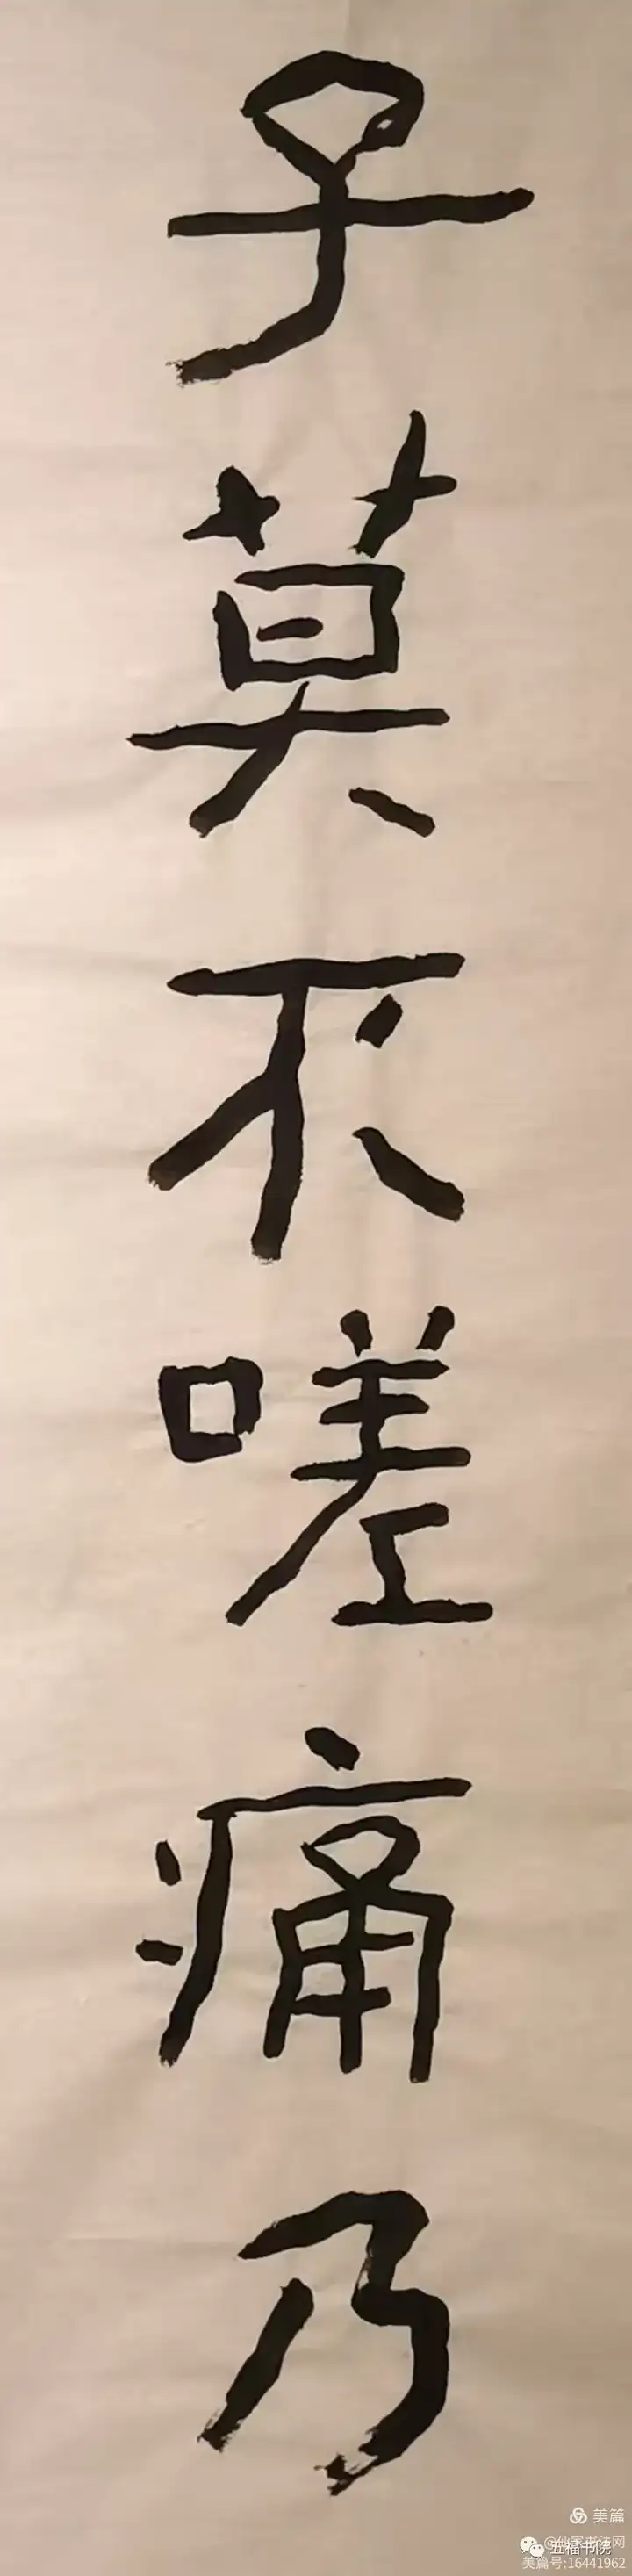 子莫不嗟痛乃
美篇
@仙家书法网
五福书院
美篇号:16441962